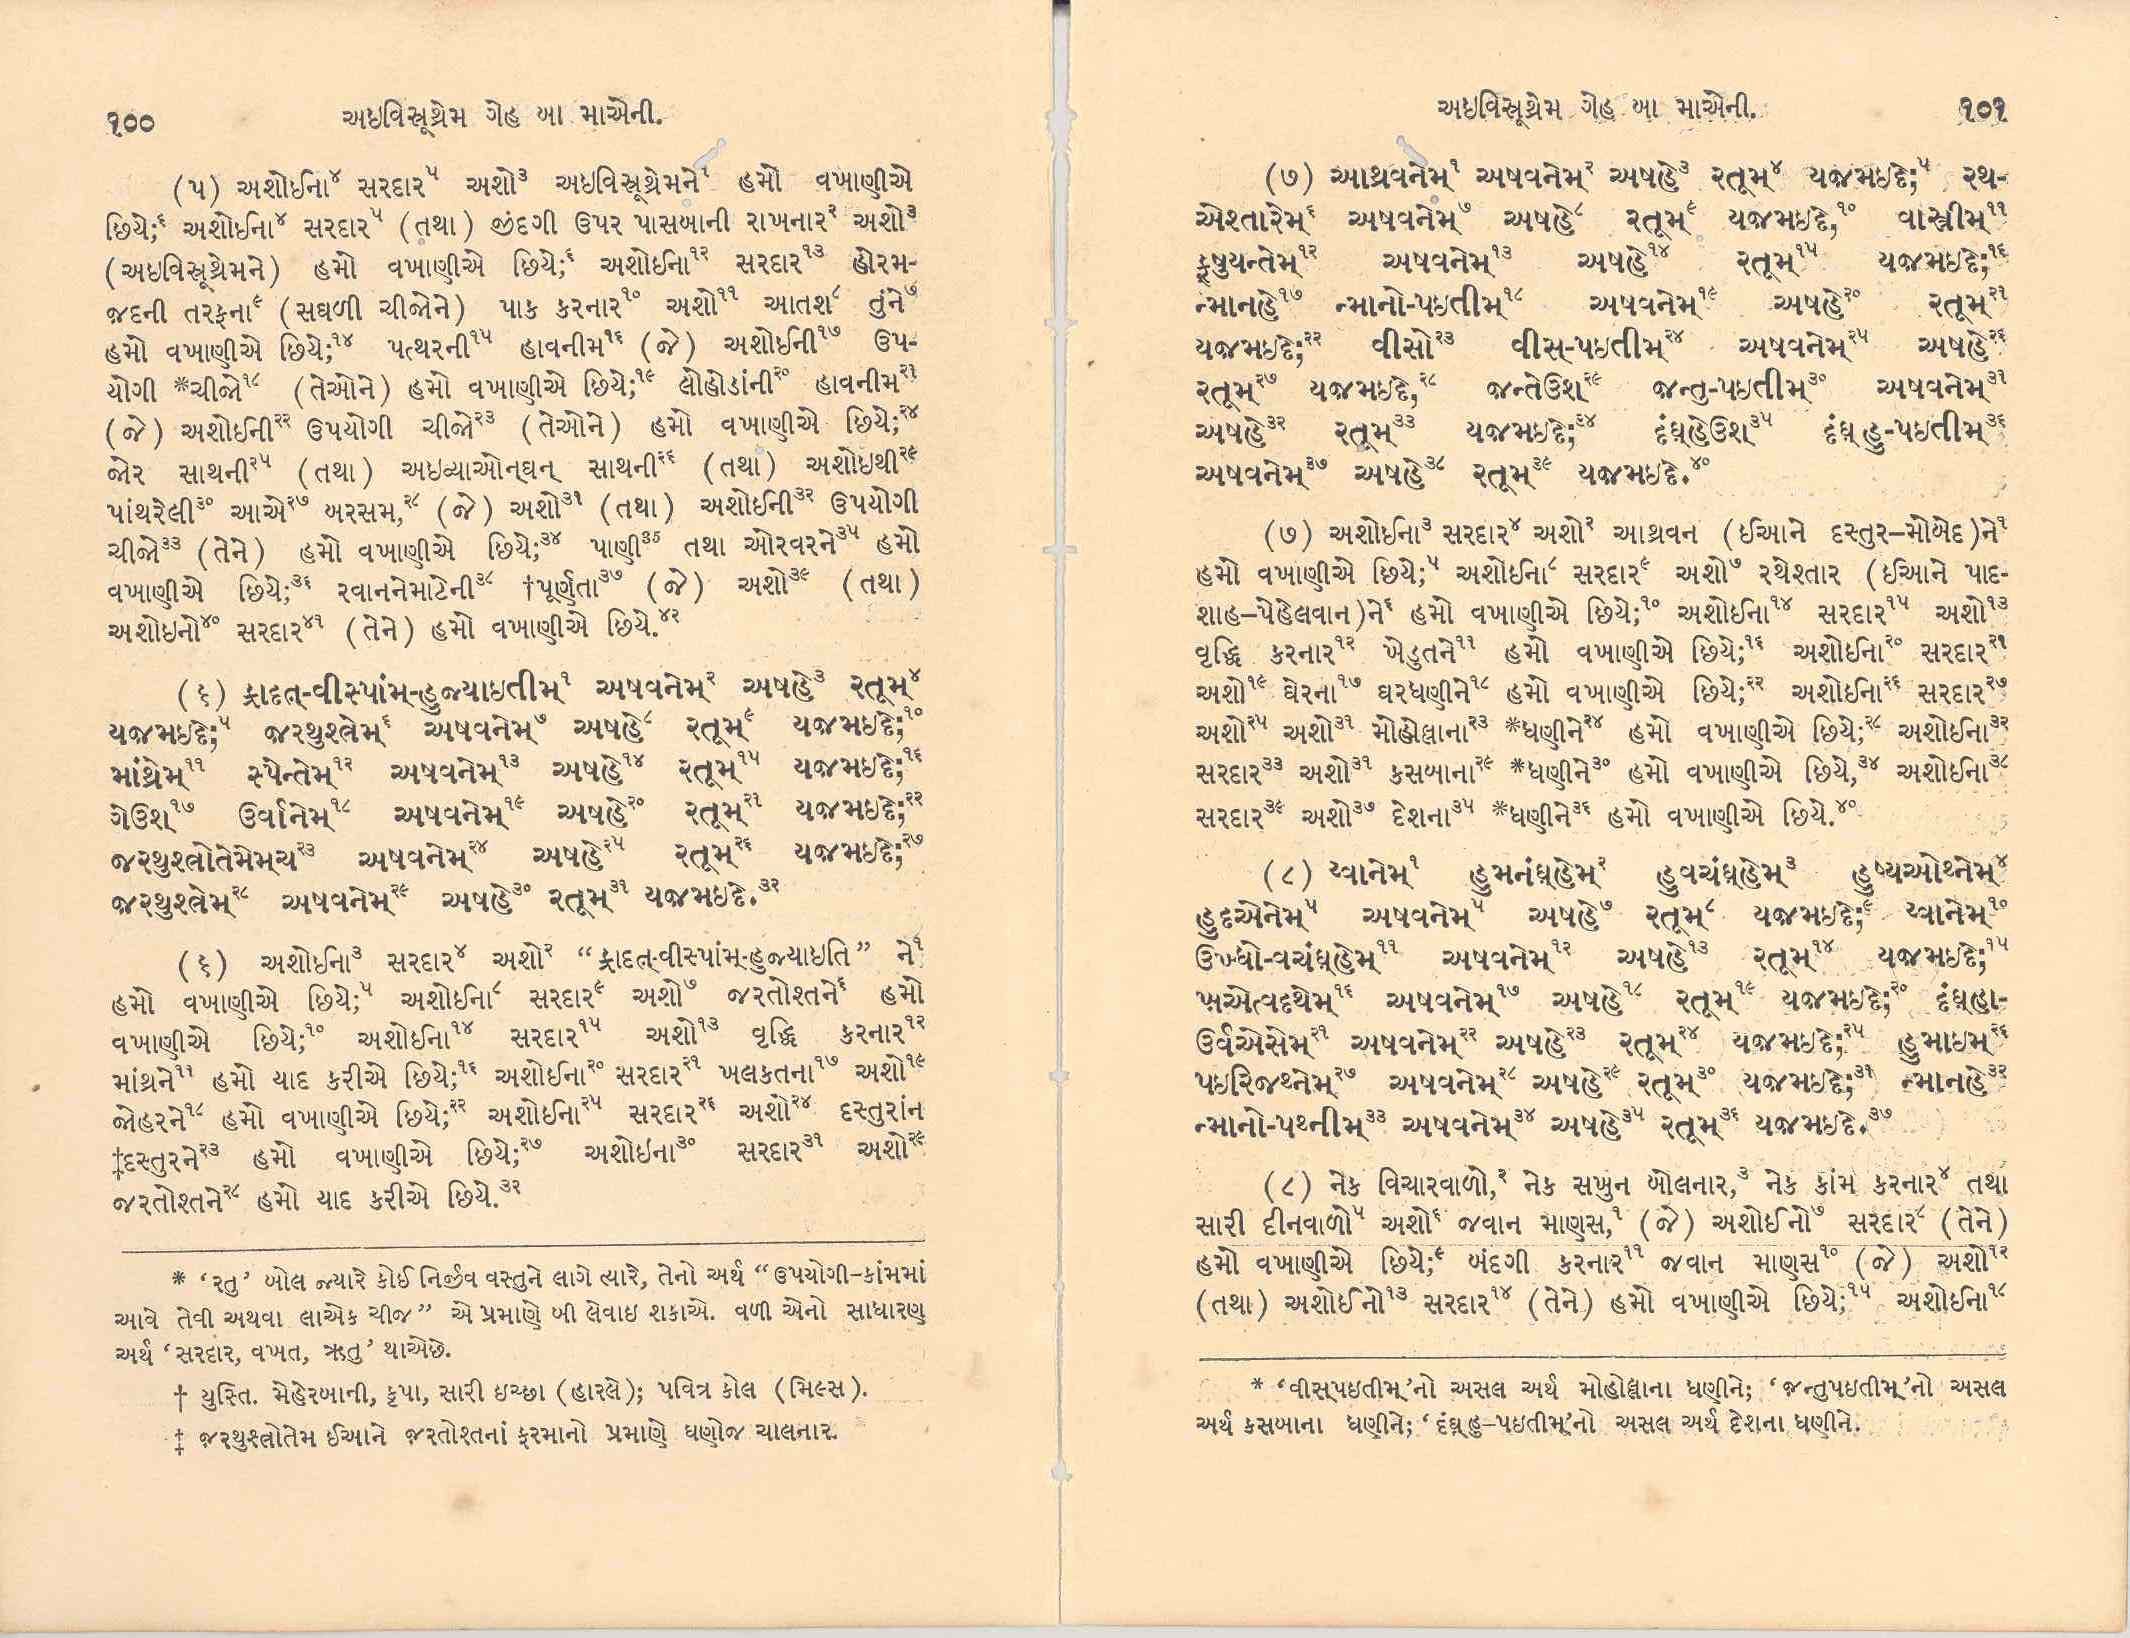 ૧૦૦ અઇવિસ્રૂથ્રેમ ગેહ બા માએની.
(૫) અશોઈના⁴ સરદાર⁵ અશો³ અઇવિસ્રૂથ્રેમને¹ હમો વખાણીએ
છિયે;⁶ અશોઈના⁴ સરદાર⁵ (તથા) જીંદગી ઉપર પાસબાની રાખનાર² અશો³
(અઇવિસ્રૂથ્રેમને) હમો વખાણીએ છિયે;⁶ અશોઈના¹² સરદાર¹³ હોરમ-
જ઼દની તરફના⁹ (સઘળી ચીજોને) પાક કરનાર¹⁰ અશો¹¹ આતશ⁸ તુંને⁷
હમો વખાણીએ છિયે;¹⁴ પત્થરની¹⁵ હાવનીમ¹⁶ (જે) અશોઈની¹⁷ ઉપ-
યોગી *ચીજો¹⁸ (તેઓને) હમો વખાણીએ છિયે;¹⁹ લોહોડાંની²⁰ હાવનીમ²¹
(જે) અશોઈની²² ઉપયોગી ચીજો²³ (તેઓને) હમો વખાણીએ છિયે;²⁴
જોર સાથની²⁵ (તથા) અઇવ્યાઓન્ઘન્ સાથની²⁶ (તથા) અશોઇથી²⁹
પાંથરેલી³⁰ આએ²⁷ બરસમ,²⁸ (જે) અશો³¹ (તથા) અશોઈની³² ઉપયોગી
ચીજો³³ (તેને) હમો વખાણીએ છિયે;³⁴ પાણી³⁵ તથા ઓરવરને³⁵ હમો
વખાણીએ છિયે;³⁶ રવાનનેમાટેની³⁸ †પૂર્ણતા³⁷ (જે) અશો³⁹ (તથા)
અશોઇનો⁴⁰ સરદાર⁴¹ (તેને) હમો વખાણીએ છિયે.⁴²
(૬) ફ્રાદત્-વીસ્પાંમ્-હુજ્યાઇતીમ્¹ અષવનેમ્² અષહે³ રતૂમ્⁴
યજ઼મઇદે;⁵ જ઼રથુશ્ત્રેમ્⁶ અષવનેમ્⁷ અષહે⁸ રતૂમ્⁹ યજ઼મઇદે;¹⁰
માંથ્રેમ્¹¹ સ્પેન્તેમ્¹² અષવનેમ્¹³ અષહે¹⁴ રતૂમ્¹⁵ યજ઼મઇદે;¹⁶
ગેઉશ્¹⁷ ઉર્વાનેમ્¹⁸ અષવનેમ્¹⁹ અષહે²⁰ રતૂમ્²¹ યજ઼મઇદે;²²
જ઼રથુશ્ત્રોતેમેમ્ચ²³ અષવનેમ્²⁴ અષહે²⁵ રતૂમ્²⁶ યજ઼મઇદે;²⁷
જ઼રથુશ્ત્રેમ્²⁸ અષવનેમ્²⁹ અષહે³⁰ રતૂમ્³¹ યજ઼મઇદે.³²
(૬) અશોઈના³ સરદાર⁴ અશો² “ફ્રાદત્-વીસ્પાંમ્-હુજ્યાઇતિ” ને¹
હમો વખાણીએ છિયે;⁵ અશોઈના⁸ સરદાર⁹ અશો⁷ જરતોશ્તને⁶ હમો
વખાણીએ છિયે;¹⁰ અશોઈના¹⁴ સરદાર¹⁵ અશો¹³ વૃદ્ધિ કરનાર¹²
માંથ્રને¹¹ હમો યાદ કરીએ છિયે;¹⁶ અશોઈના²⁰ સરદાર²¹ ખલકતના¹⁷ અશો¹⁹
જોહરને¹⁸ હમો વખાણીએ છિયે;²² અશોઈના²⁵ સરદાર²⁶ અશો²⁴ દસ્તુરાંન
‡દસ્તુરને²³ હમો વખાણીએ છિયે;²⁷ અશોઇના³⁰ સરદાર³¹ અશો²⁹
જરતોશ્તને²⁸ હમો યાદ કરીએ છિયે.³²
* ‘રતુ’ બોલ જ્યારે કોઈ નિર્જીવ વસ્તુને લાગે ત્યારે, તેનો અર્થ “ઉપયોગી–કાંમમાં
આવે તેવી અથવા લાએક ચીજ” એ પ્રમાણે બી લેવાઇ શકાએ. વળી એનો સાધારણ
અર્થ ‘સરદાર, વખત, ઋતુ’ થાએછે.
† યુસ્તિ. મેહેરબાની, કૃપા, સારી ઇચ્છા (હારલે); પવિત્ર કોલ (મિલ્સ).
‡ જ઼રથુશ્ત્રોતેમ ઈઆને જ઼રતોશ્તનાં ફરમાનો પ્રમાણે ઘણોજ ચાલનાર.
અઇવિસ્રૂથ્રેમ ગેહ બા માએની. ૧૦૧
(૭) આથ્રવનેમ્¹ અષવનેમ્² અષહે³ રતૂમ્⁴ યજ઼મઇદે;⁵ રથ-
એશ્તારેમ્⁶ અષવનેમ્⁷ અષહે⁸ રતૂમ્⁹ યજ઼મઇદે;¹⁰ વાસ્ત્રીમ્¹¹
ફ્ષુયન્તેમ્¹² અષવનેમ્¹³ અષહે¹⁴ રતૂમ્¹⁵ યજ઼મઇદે;¹⁶
ન્માનહે¹⁷ ન્માનો-પઇતીમ્¹⁸ અષવનેમ્¹⁹ અષહે²⁰ રતૂમ્²¹
યજ઼મઇદે;²² વીસો²³ વીસ્-પઇતીમ્²⁴ અષવનેમ્²⁵ અષહે²⁶
રતૂમ્²⁷ યજ઼મઇદે;²⁸ જ઼ન્તેઉશ્²⁹ જ઼ન્તુ-પઇતીમ્³⁰ અષવનેમ્³¹
અષહે³² રતૂમ્³³ યજ઼મઇદે;³⁴ દંઘ્હેઉશ્³⁵ દંઘ્હુ-પઇતીમ્³⁶
અષવનેમ્³⁷ અષહે³⁸ રતૂમ્³⁹ યજ઼મઇદે.⁴⁰
(૭) અશોઈના³ સરદાર⁴ અશો² આથ્રવન (ઈઆને દસ્તુર–મોબેદ)ને¹
હમો વખાણીએ છિયે;⁵ અશોઈના⁸ સરદાર⁹ અશો⁷ રથેશ્તાર (ઈઆને પાદ-
શાહ–પેહેલવાન)ને⁶ હમો વખાણીએ છિયે;¹⁰ અશોઈના¹⁴ સરદાર¹⁵ અશો¹³
વૃદ્ધિ કરનાર¹² ખેડુતને¹¹ હમો વખાણીએ છિયે;¹⁶ અશોઈના²⁰ સરદાર²¹
અશો¹⁹ ઘેરના¹⁷ ઘરધણીને¹⁸ હમો વખાણીએ છિયે;²² અશોઈના²⁶ સરદાર²⁷
અશો²⁵ અશો³¹ મોહોલ્લાના²³ *ધણીને²⁴ હમો વખાણીએ છિયે;²⁸ અશોઈના³²
સરદાર³³ અશો³¹ કસબાના²⁹ *ધણીને³⁰ હમો વખાણીએ છિયે,³⁴ અશોઈના³⁸
સરદાર³⁹ અશો³⁷ દેશના³⁵ *ધણીને³⁶ હમો વખાણીએ છિયે.⁴⁰
(૮) ય્વાનેમ્¹ હુમનંઘ્હેમ્² હુવચંઘ્હેમ્³ હુષ્યઓથ્નેમ્⁴
હુદએનેમ્⁵ અષવનેમ્⁵ અષહે⁷ રતૂમ્⁸ યજ઼મઇદે;⁹ ય્વાનેમ્¹⁰
ઉખ્ધો-વચંઘ્હેમ્¹¹ અષવનેમ્¹² અષહે¹³ રતૂમ્¹⁴ યજ઼મઇદે;¹⁵
ખ્એત્વદથેમ્¹⁶ અષવનેમ્¹⁷ અષહે¹⁸ રતૂમ્¹⁹ યજ઼મઇદે;²⁰ દંઘ્હા-
ઉર્વએસેમ્²¹ અષવનેમ્²² અષહે²³ રતૂમ્²⁴ યજ઼મઇદે;²⁵ હુમાઇમ્²⁶
પઇરિજથ્નેમ્²⁷ અષવનેમ્²⁸ અષહે²⁹ રતૂમ્³⁰ યજ઼મઇદે;³¹ ન્માનહે³²
ન્માનો-પથ્નીમ્³³ અષવનેમ્³⁴ અષહે³⁵ રતૂમ્³⁶ યજ઼મઇદે.³⁷
(૮) નેક વિચારવાળો,² નેક સખુન બોલનાર,³ નેક કાંમ કરનાર⁴ તથા
સારી દીનવાળો⁵ અશો⁶ જવાન માણસ,¹ (જે) અશોઈનો⁷ સરદાર⁸ (તેને)
હમો વખાણીએ છિયે;⁹ બંદગી કરનાર¹¹ જવાન માણસ¹⁰ (જે) અશો¹²
(તથા) અશોઈનો¹³ સરદાર¹⁴ (તેને) હમો વખાણીએ છિયે;¹⁵ અશોઈના¹⁸
* ‘વીસ્પઇતીમ્’નો અસલ અર્થ મોહોલ્લાના ધણીને; ‘જ઼ન્તુપઇતીમ્’નો અસલ
અર્થ કસબાના ધણીને; ‘દંઘ્હુ–પઇતીમ્’નો અસલ અર્થ દેશના ધણીને.